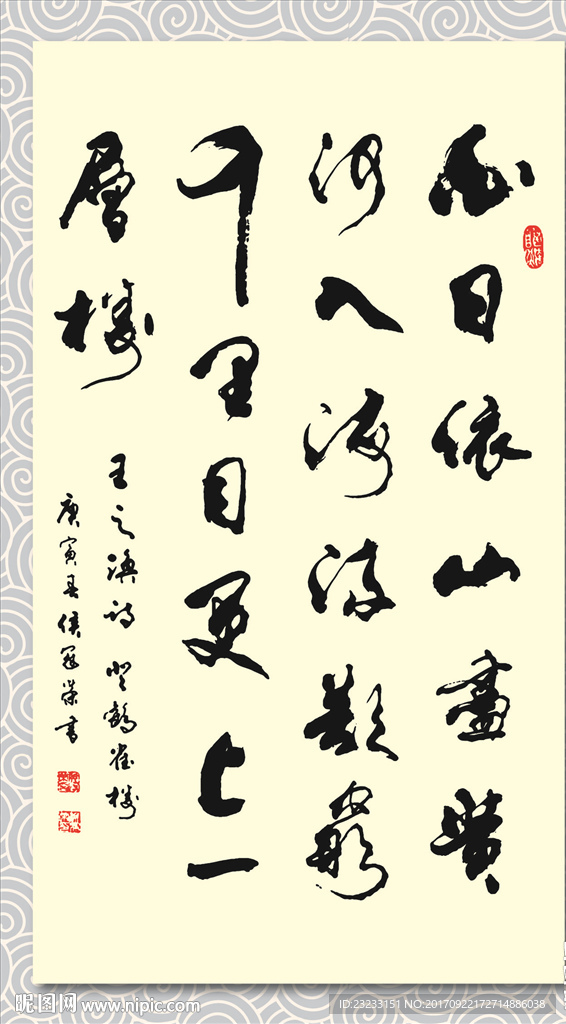 白日依山盡黄
河入海流欲窮
千里目更上一
層樓
王之渙詩 登鸛雀樓
庚寅春侯冠荣書
昵图网 www.nipic.com
ID:23233151 NO:20170922172714886038